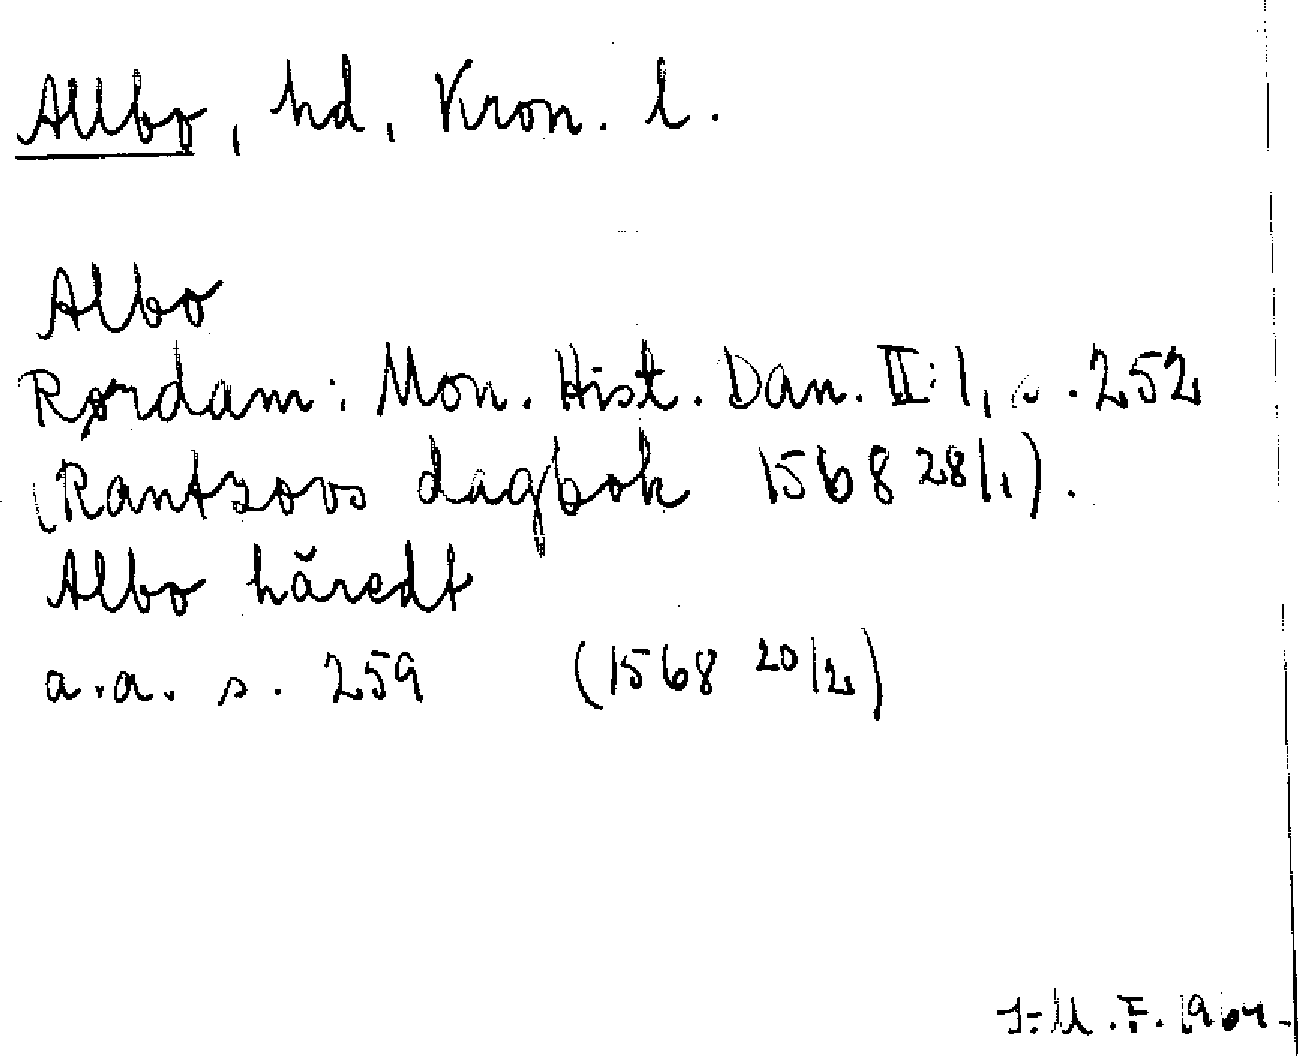 Allbo, hd, Kron. l.
Albo
Rørdam: Mon. Hist. Dan. II:1, s. 252
(Rantzovs dagbok 1568 28/1).
Albo hăredt
a.a. s. 259 (1568 20/2)
I-M.F. 1964